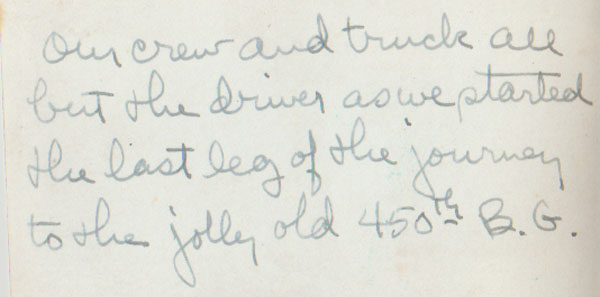 Our crew and truck all
but the driver as we started
the last leg of the journey
to the jolly old 450th B.G.